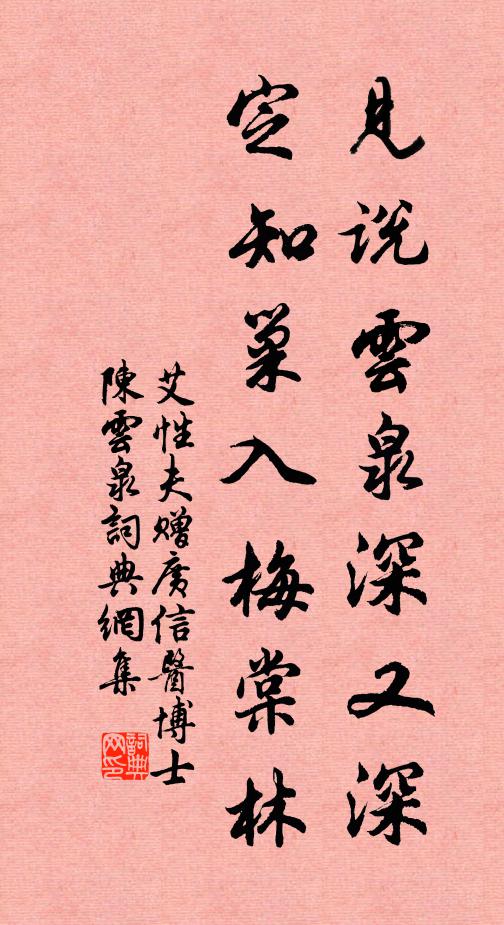 見說雲泉深又深
定知巢入梅棠林
艾性夫贈廣信醫博士
陳雲泉詞典網集
詞典
网印